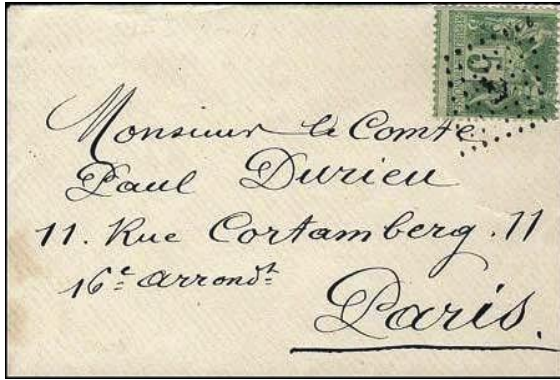 Monsieur le Comte
Paul Durieu
11. Rue Cortamberg. 11
16e arrondt
Paris.
5